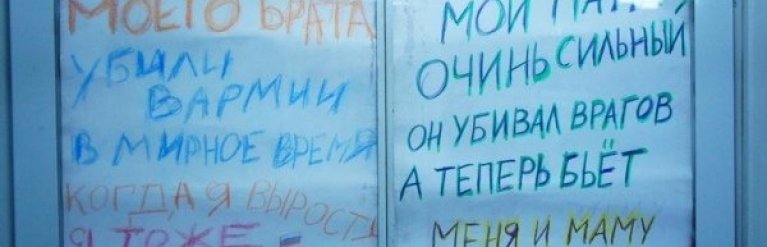 МОЕГО БРАТА
УБИЛИ
ВАРМИИ
В МИРНОЕ ВРЕМЯ
КОГДА Я ВЫРОСТУ
Я ТОЖЕ
МОЙ
ОЧИНЬ СИЛЬНЫЙ
ОН УБИВАЛ ВРАГОВ
А ТЕПЕРЬ БЬЁТ
МЕНЯ И МАМУ